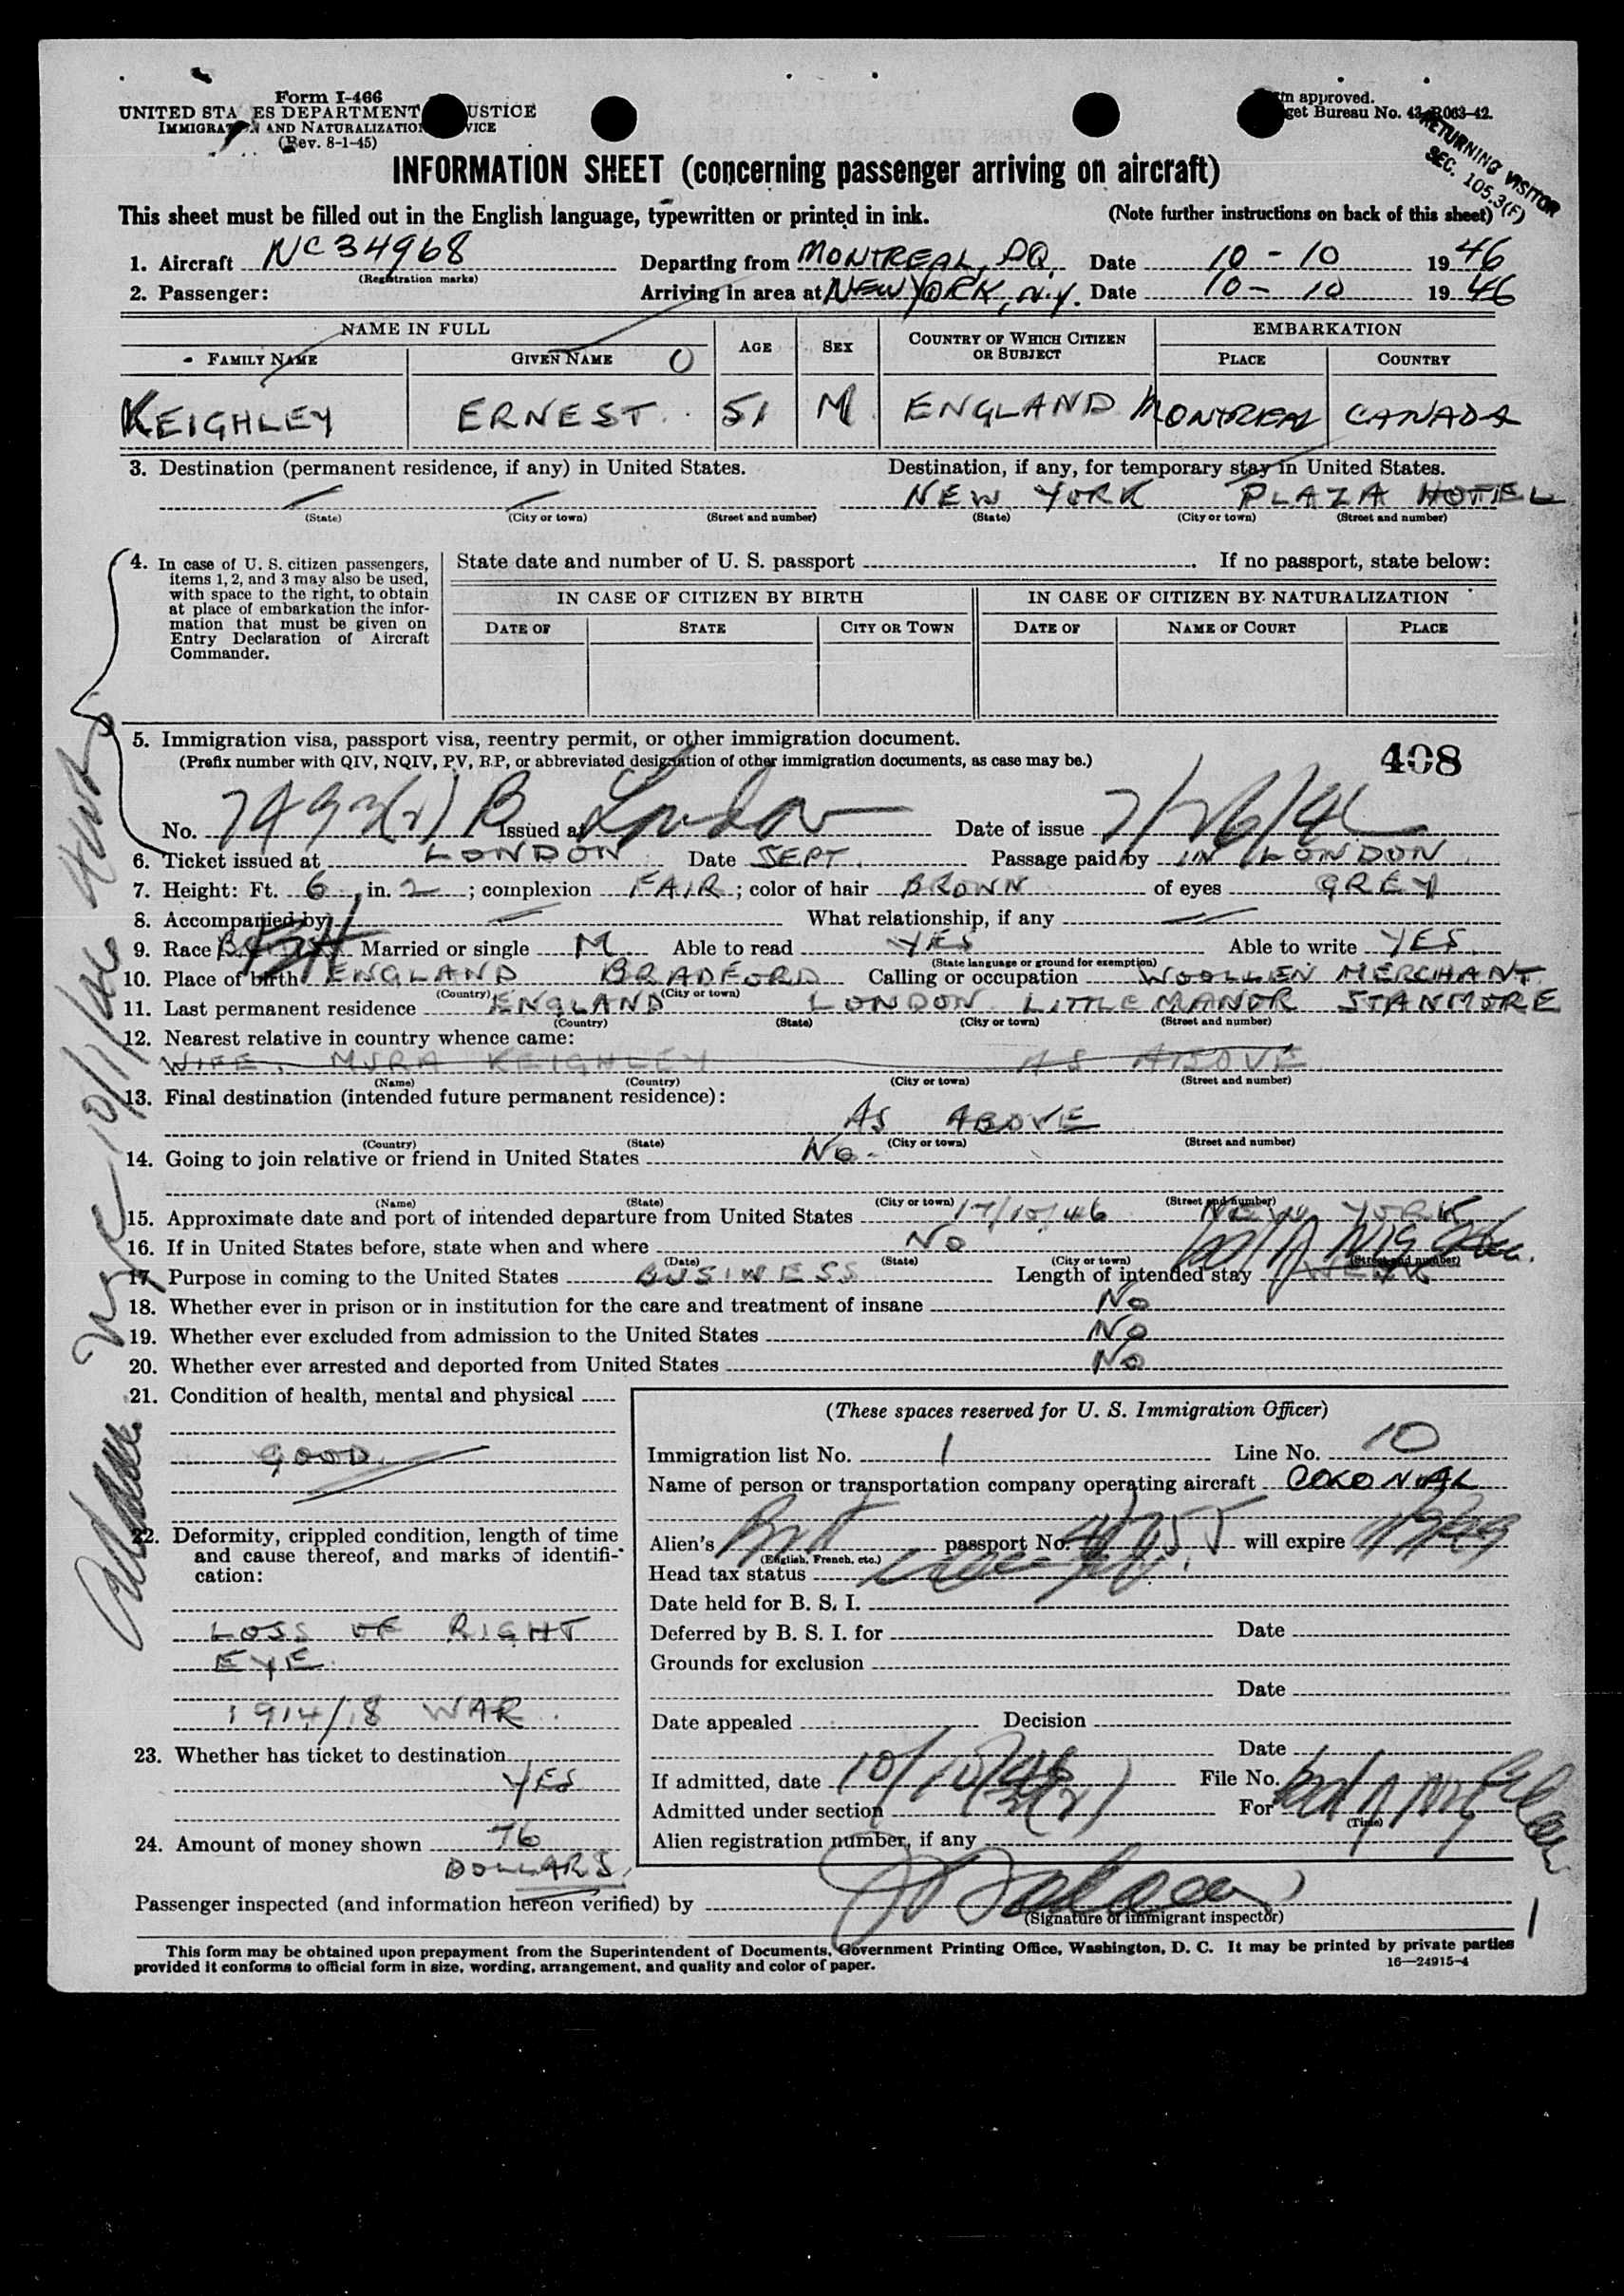 Form I-466
UNITED STATES DEPARTMENT JUSTICE
IMMIGRATION AND NATURALIZATION VICE
(Rev. 8-1-45)
m approved.
get Bureau No. 43-R063-42.
RETURNING VISITOR
SEC. 105.3(F)
INFORMATION SHEET (concerning passenger arriving on aircraft)
This sheet must be filled out in the English language, typewritten or printed in ink. (Note further instructions on back of this sheet)
1. Aircraft NC34968 Departing from MONTREAL, PQ. Date 10-10 1946
(Registration marks)
2. Passenger: Arriving in area at NEW YORK, N.Y. Date 10-10 1946
NAME IN FULL EMBARKATION
FAMILY NAME GIVEN NAME AGE SEX COUNTRY OF WHICH CITIZEN OR SUBJECT PLACE COUNTRY
KEIGHLEY ERNEST. 51 M ENGLAND MONTREAL CANADA
3. Destination (permanent residence, if any) in United States. Destination, if any, for temporary stay in United States.
NEW YORK PLAZA HOTEL
(State) (City or town) (Street and number) (State) (City or town) (Street and number)
4. In case of U. S. citizen passengers, items 1, 2, and 3 may also be used, with space to the right, to obtain at place of embarkation the information that must be given on Entry Declaration of Aircraft Commander.
State date and number of U. S. passport . If no passport, state below:
IN CASE OF CITIZEN BY BIRTH IN CASE OF CITIZEN BY NATURALIZATION
DATE OF STATE CITY OR TOWN DATE OF NAME OF COURT PLACE
5. Immigration visa, passport visa, reentry permit, or other immigration document.
(Prefix number with QIV, NQIV, PV, RP, or abbreviated designation of other immigration documents, as case may be.)
408
No. Issued at London Date of issue 7/26/46
6. Ticket issued at LONDON Date SEPT. Passage paid by IN LONDON
7. Height: Ft. 6, in. 2; complexion FAIR; color of hair BROWN of eyes GREY
8. Accompanied by What relationship, if any
9. Race Married or single M Able to read YES Able to write YES
(State language or ground for exemption)
10. Place of birth ENGLAND BRADFORD Calling or occupation WOOLLEN MERCHANT
(Country) (City or town)
11. Last permanent residence ENGLAND LONDON LITTLE MANOR STANMORE
(Country) (State) (City or town) (Street and number)
12. Nearest relative in country whence came:
WIFE. MYRA KEIGHLEY AS ABOVE
(Name) (Country) (City or town) (Street and number)
13. Final destination (intended future permanent residence):
AS ABOVE
(Country) (State) (City or town) (Street and number)
14. Going to join relative or friend in United States No.
(Name) (State) (City or town) (Street and number)
15. Approximate date and port of intended departure from United States 17/10/46 NEW YORK
16. If in United States before, state when and where No
(Date) (State) (City or town) (Street and number)
17. Purpose in coming to the United States BUSINESS Length of intended stay WEEK
18. Whether ever in prison or in institution for the care and treatment of insane No
19. Whether ever excluded from admission to the United States No
20. Whether ever arrested and deported from United States No
21. Condition of health, mental and physical
GOOD.
22. Deformity, crippled condition, length of time and cause thereof, and marks of identification:
LOSS OF RIGHT
EYE.
1914/18 WAR
23. Whether has ticket to destination
YES
24. Amount of money shown 76
DOLLARS
(These spaces reserved for U. S. Immigration Officer)
Immigration list No. 1 Line No. 10
Name of person or transportation company operating aircraft COLONIAL
Alien's Brit passport No. will expire
(English, French, etc.)
Head tax status
Date held for B. S. I.
Deferred by B. S. I. for Date
Grounds for exclusion
Date
Date appealed Decision
Date
If admitted, date 10/10/46 File No.
Admitted under section 3(2) For
(Time)
Alien registration number, if any
Passenger inspected (and information hereon verified) by
(Signature of immigrant inspector)
This form may be obtained upon prepayment from the Superintendent of Documents, Government Printing Office, Washington, D. C. It may be printed by private parties
provided it conforms to official form in size, wording, arrangement, and quality and color of paper. 16—24915-4